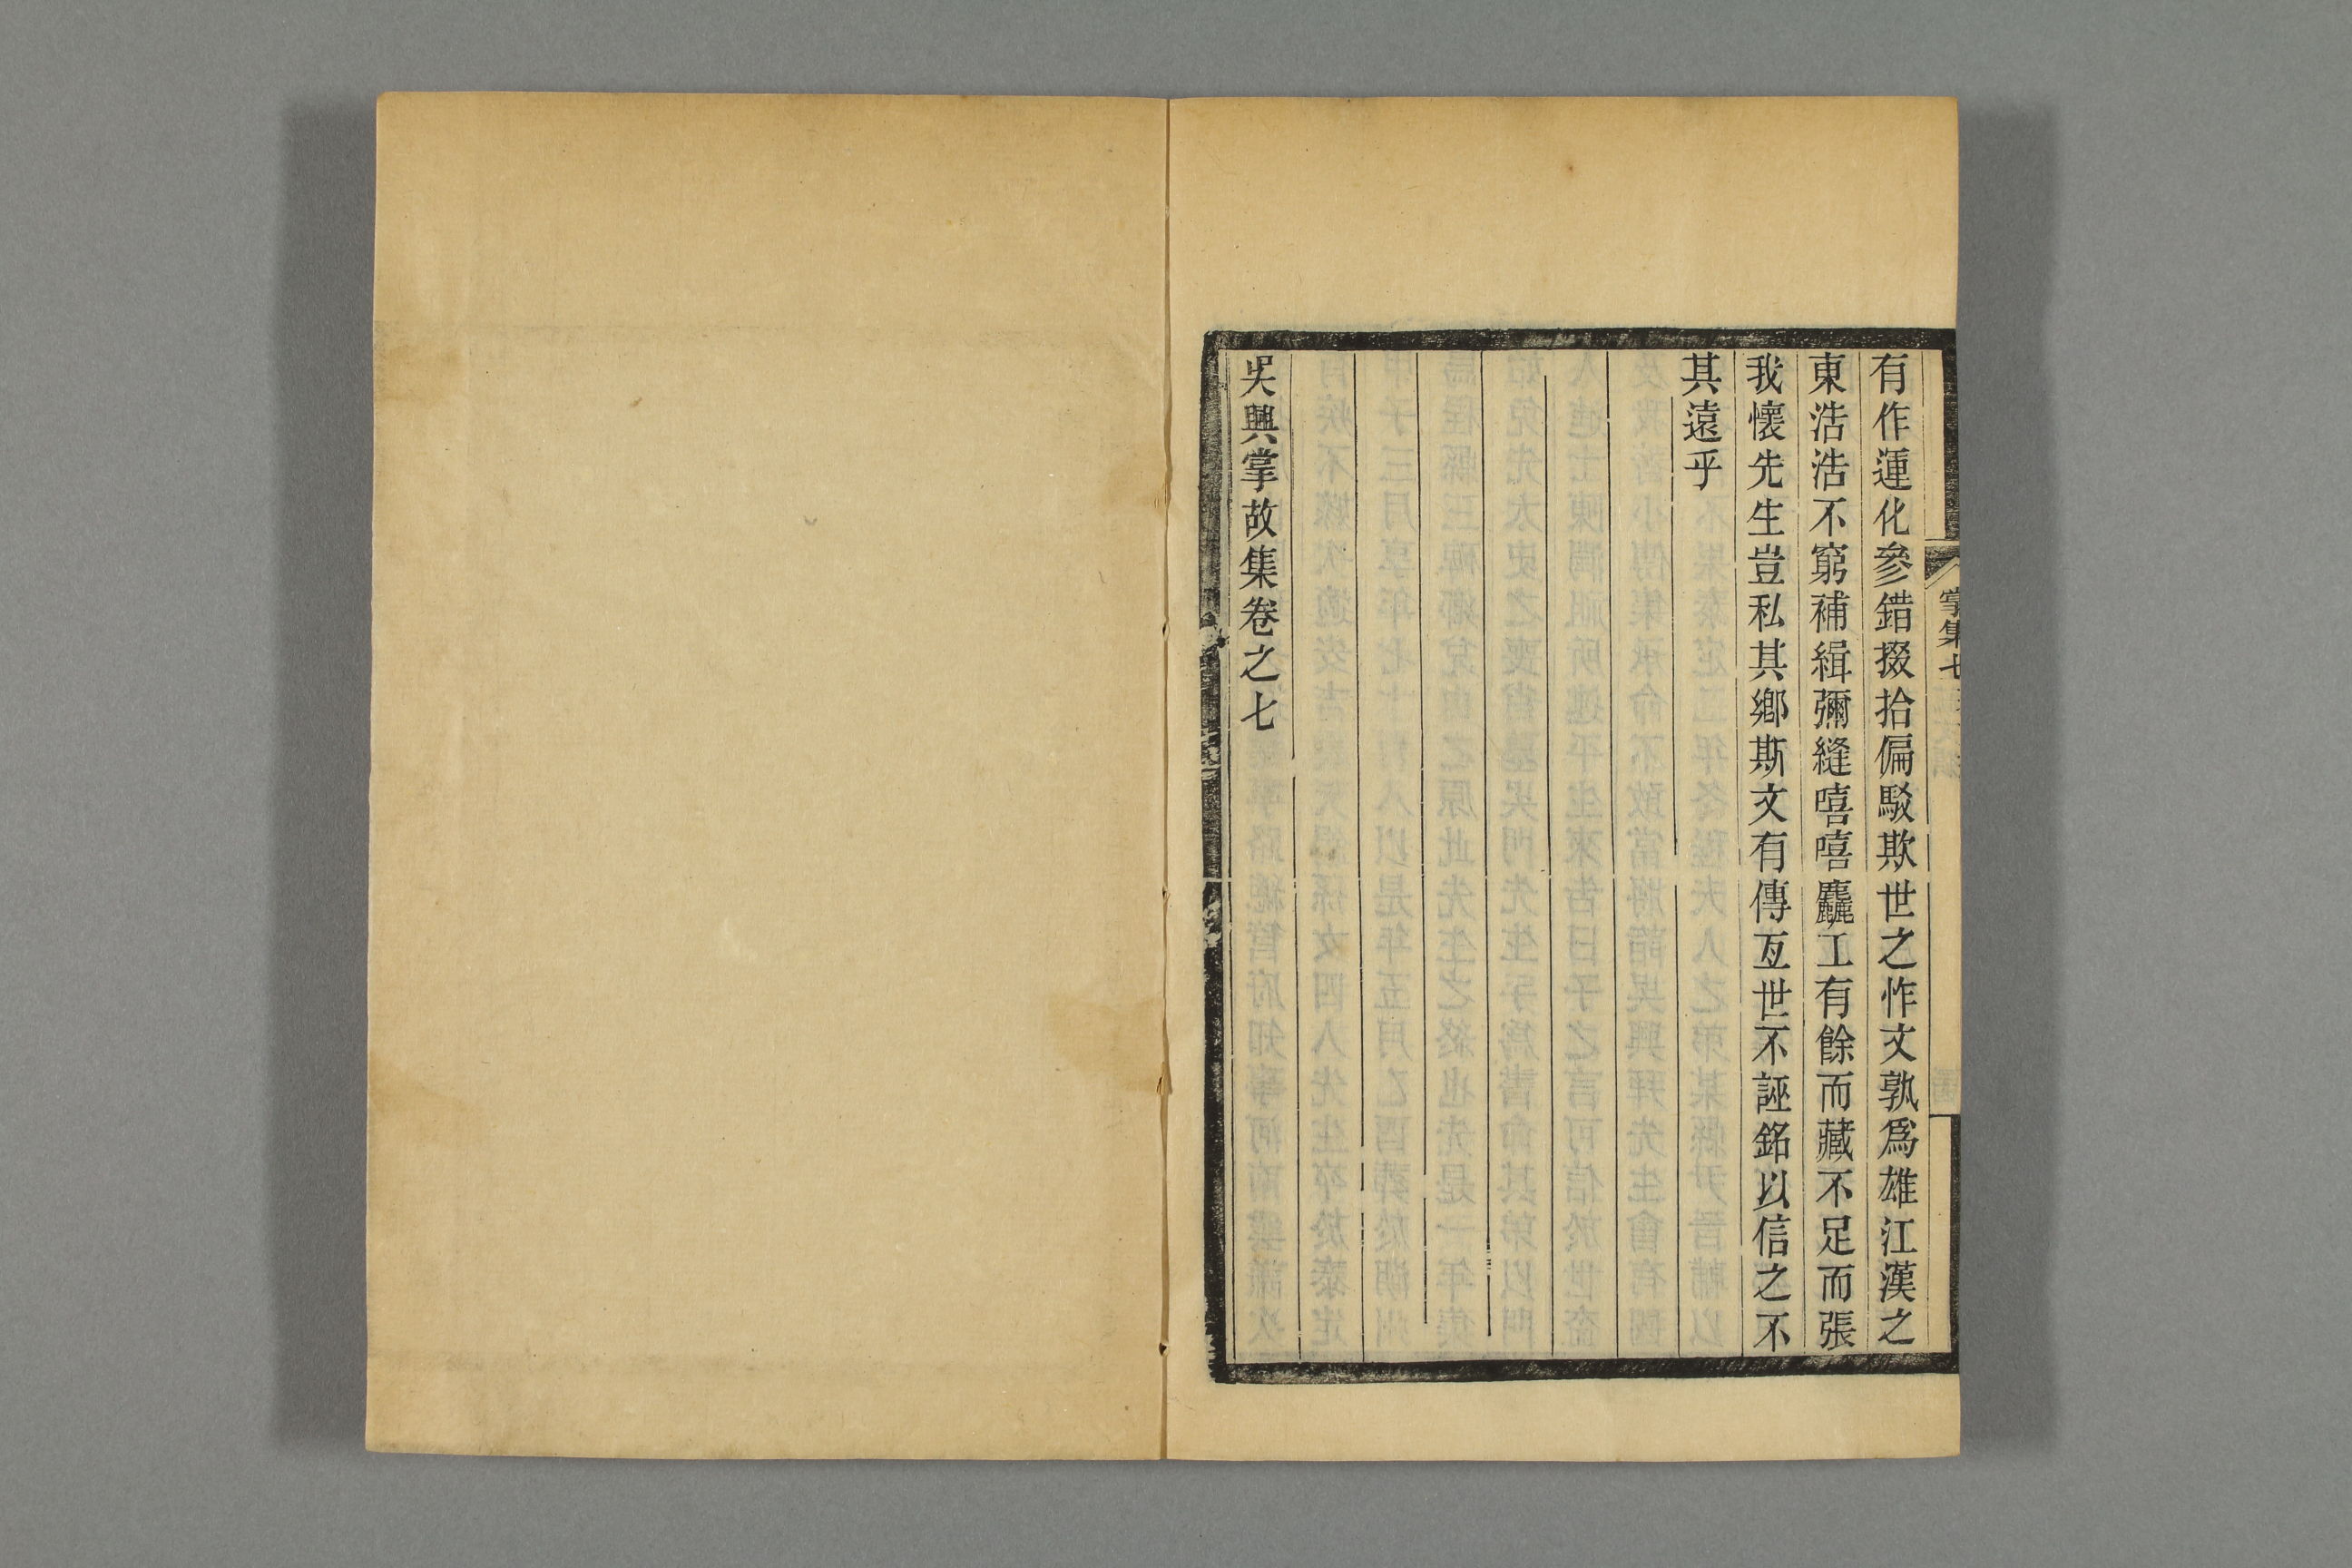 有作運化參錯掇拾偏駁欺世之怍文孰爲雄江漢之
東浩浩不窮補緝彌縫嘻嘻麤工有餘而藏不足而張
我懷先生豈私其鄉斯文有傳亙世不誣銘以信之不
其遠乎
吳興掌故集卷之七
掌集七